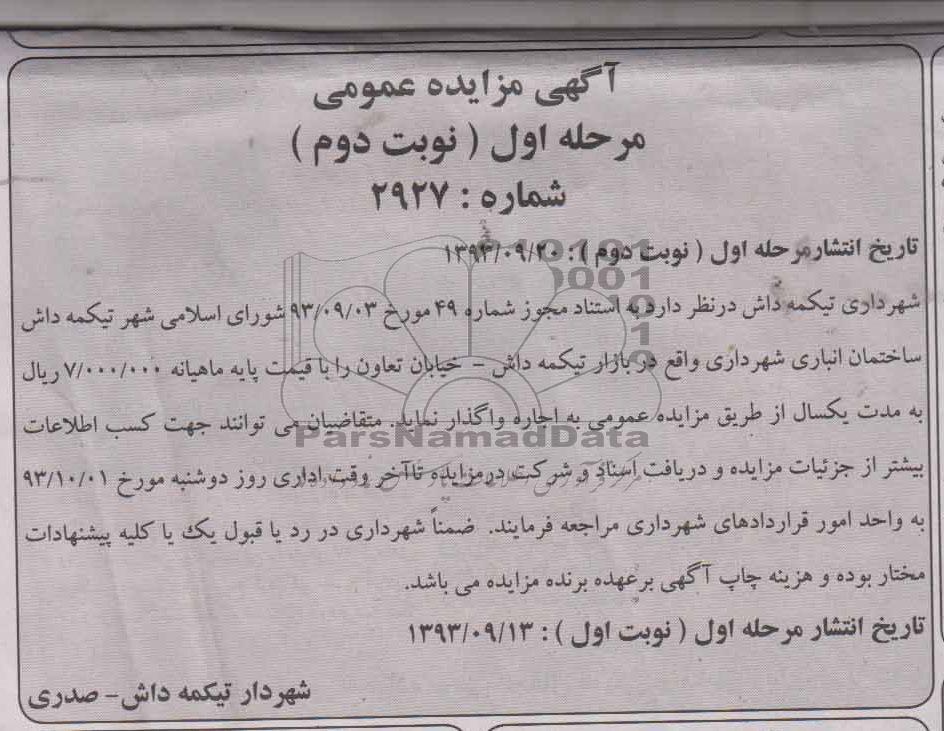 آگهی مزایده عمومی
مرحله اول ( نوبت دوم )
شماره : ۲۹۲۷
تاریخ انتشار مرحله اول ( نوبت دوم ) : ۱۳۹۳/۰۹/۲۰
شهرداری تیکمه داش درنظر دارد به استناد مجوز شماره ۴۹ مورخ ۹۳/۰۹/۰۳ شورای اسلامی شهر تیکمه داش
ساختمان انباری شهرداری واقع در بازار تیکمه داش – خیابان تعاون را با قیمت پایه ماهیانه ۷/۰۰۰/۰۰۰ ریال
به مدت یکسال از طریق مزایده عمومی به اجاره واگذار نماید. متقاضیان می توانند جهت کسب اطلاعات
ParsNamadData
بیشتر از جزئیات مزایده و دریافت اسناد و شرکت درمزایده تاآخر وقت اداری روز دوشنبه مورخ ۹۳/۱۰/۰۱
به واحد امور قراردادهای شهرداری مراجعه فرمایند. ضمناً شهرداری در رد یا قبول یک یا کلیه پیشنهادات
مختار بوده و هزینه چاپ آگهی برعهده برنده مزایده می باشد.
تاریخ انتشار مرحله اول ( نوبت اول ) : ۱۳۹۳/۰۹/۱۳
شهردار تیکمه داش- صدری